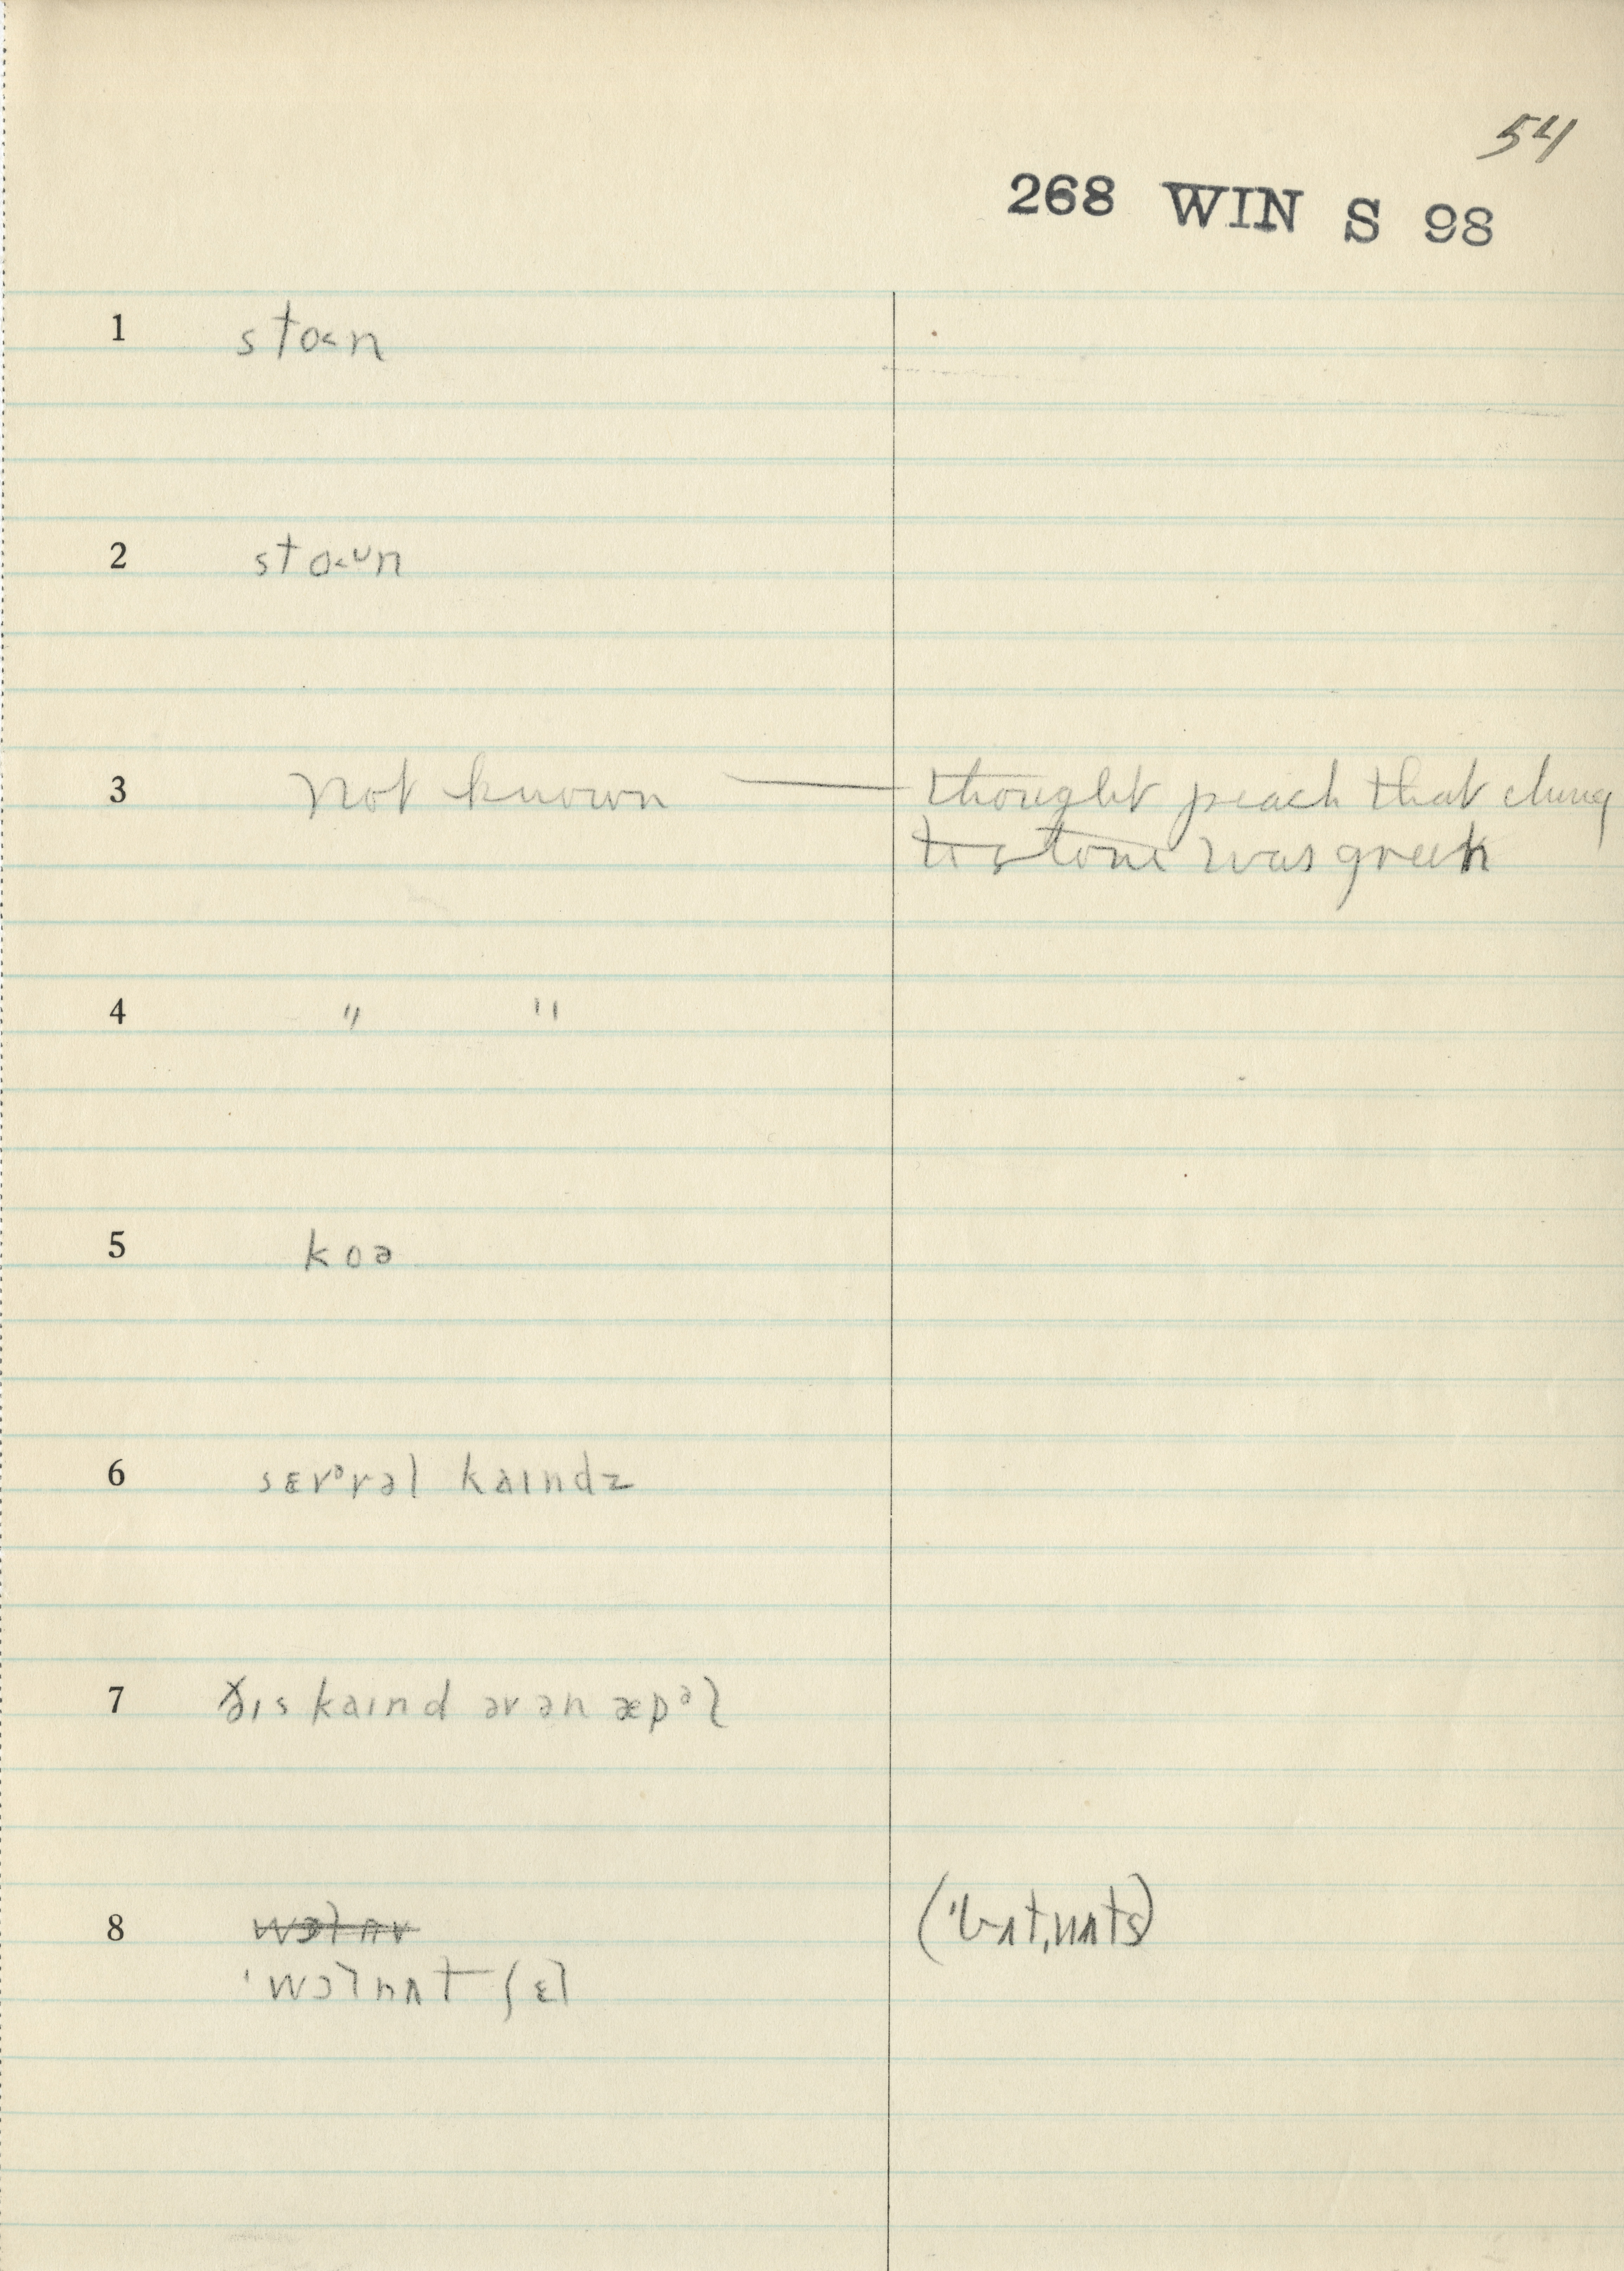 54
268 WIN S 98
1 sto˂n
2 sto˂ᴜn
3 not known — thought peach that clung
to stone was greek
4 " "
5 koə
6 sɛvᵊrəl kaɪndz
7 ðɪs kaɪnd əv ən æpᵊl
8 wɔlnʌ (ˈbʌtˌnʌts)
ˈwɔlnʌt ʃɛl